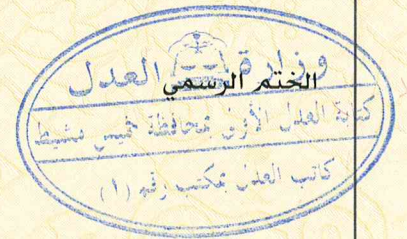 وزارة العدل
الختم الرسمي
كتابة العدل الأولى بمحافظة خميس مشيط
كاتب العدل بمكتب رقم (١)